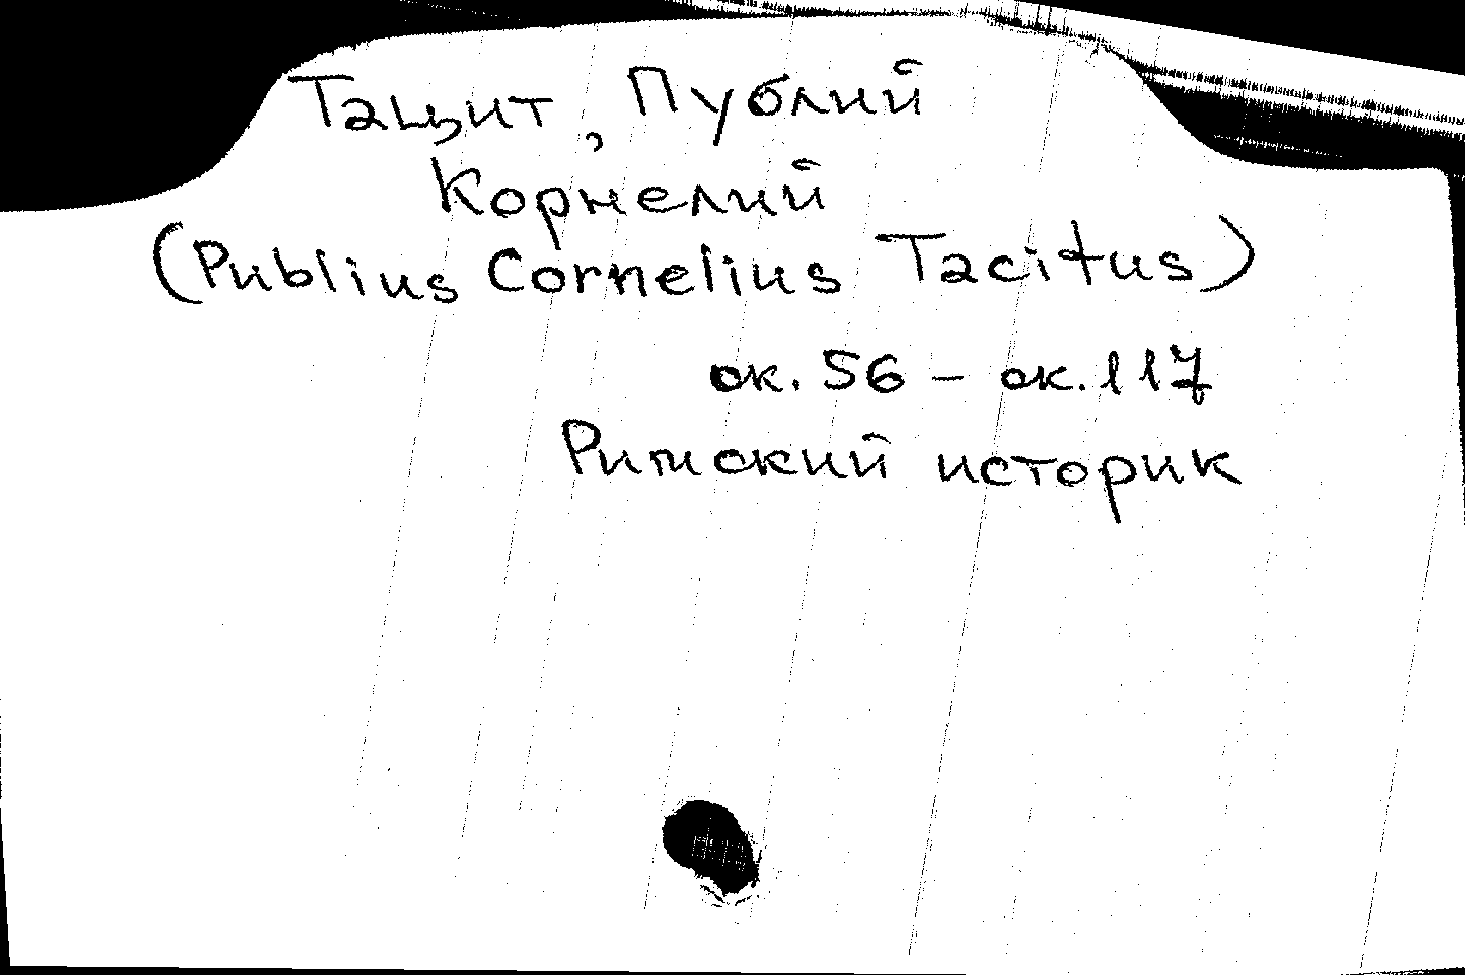 Тацит, Публий
Корнелий
(Publius Cornelius Tacitus)
ок. 56 – ок. 117
Римский историк